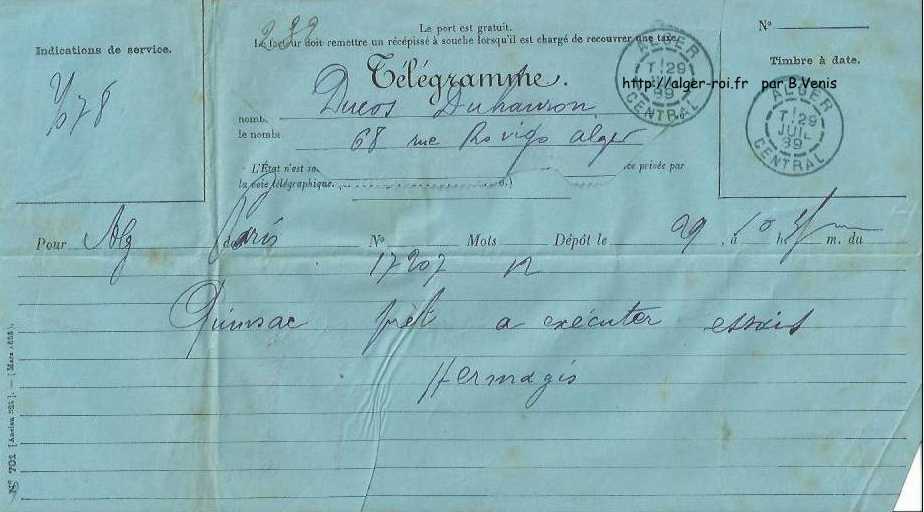 Le port est gratuit.
Le facteur doit remettre un récépissé à souche lorsqu'il est chargé de recouvrer une taxe.
Indications de service.
Télégramme.
N°
Timbre à date.
http://alger-roi.fr par B.Venis
ALGER
29
JUIL
99
CENTRAL
ALGER
29
JUIL
99
CENTRAL
Ducos Duhauron
nomb.
le nomb
68 rue Rovigo Alger
L'État n'est so
ce privée par
la voie télégraphique.
Pour Alg de Paris N° Mots Dépôt le 29 à 10 h m. du
17207 12
Quinsac prêt a exécuter essais
Hermagis
N° 701